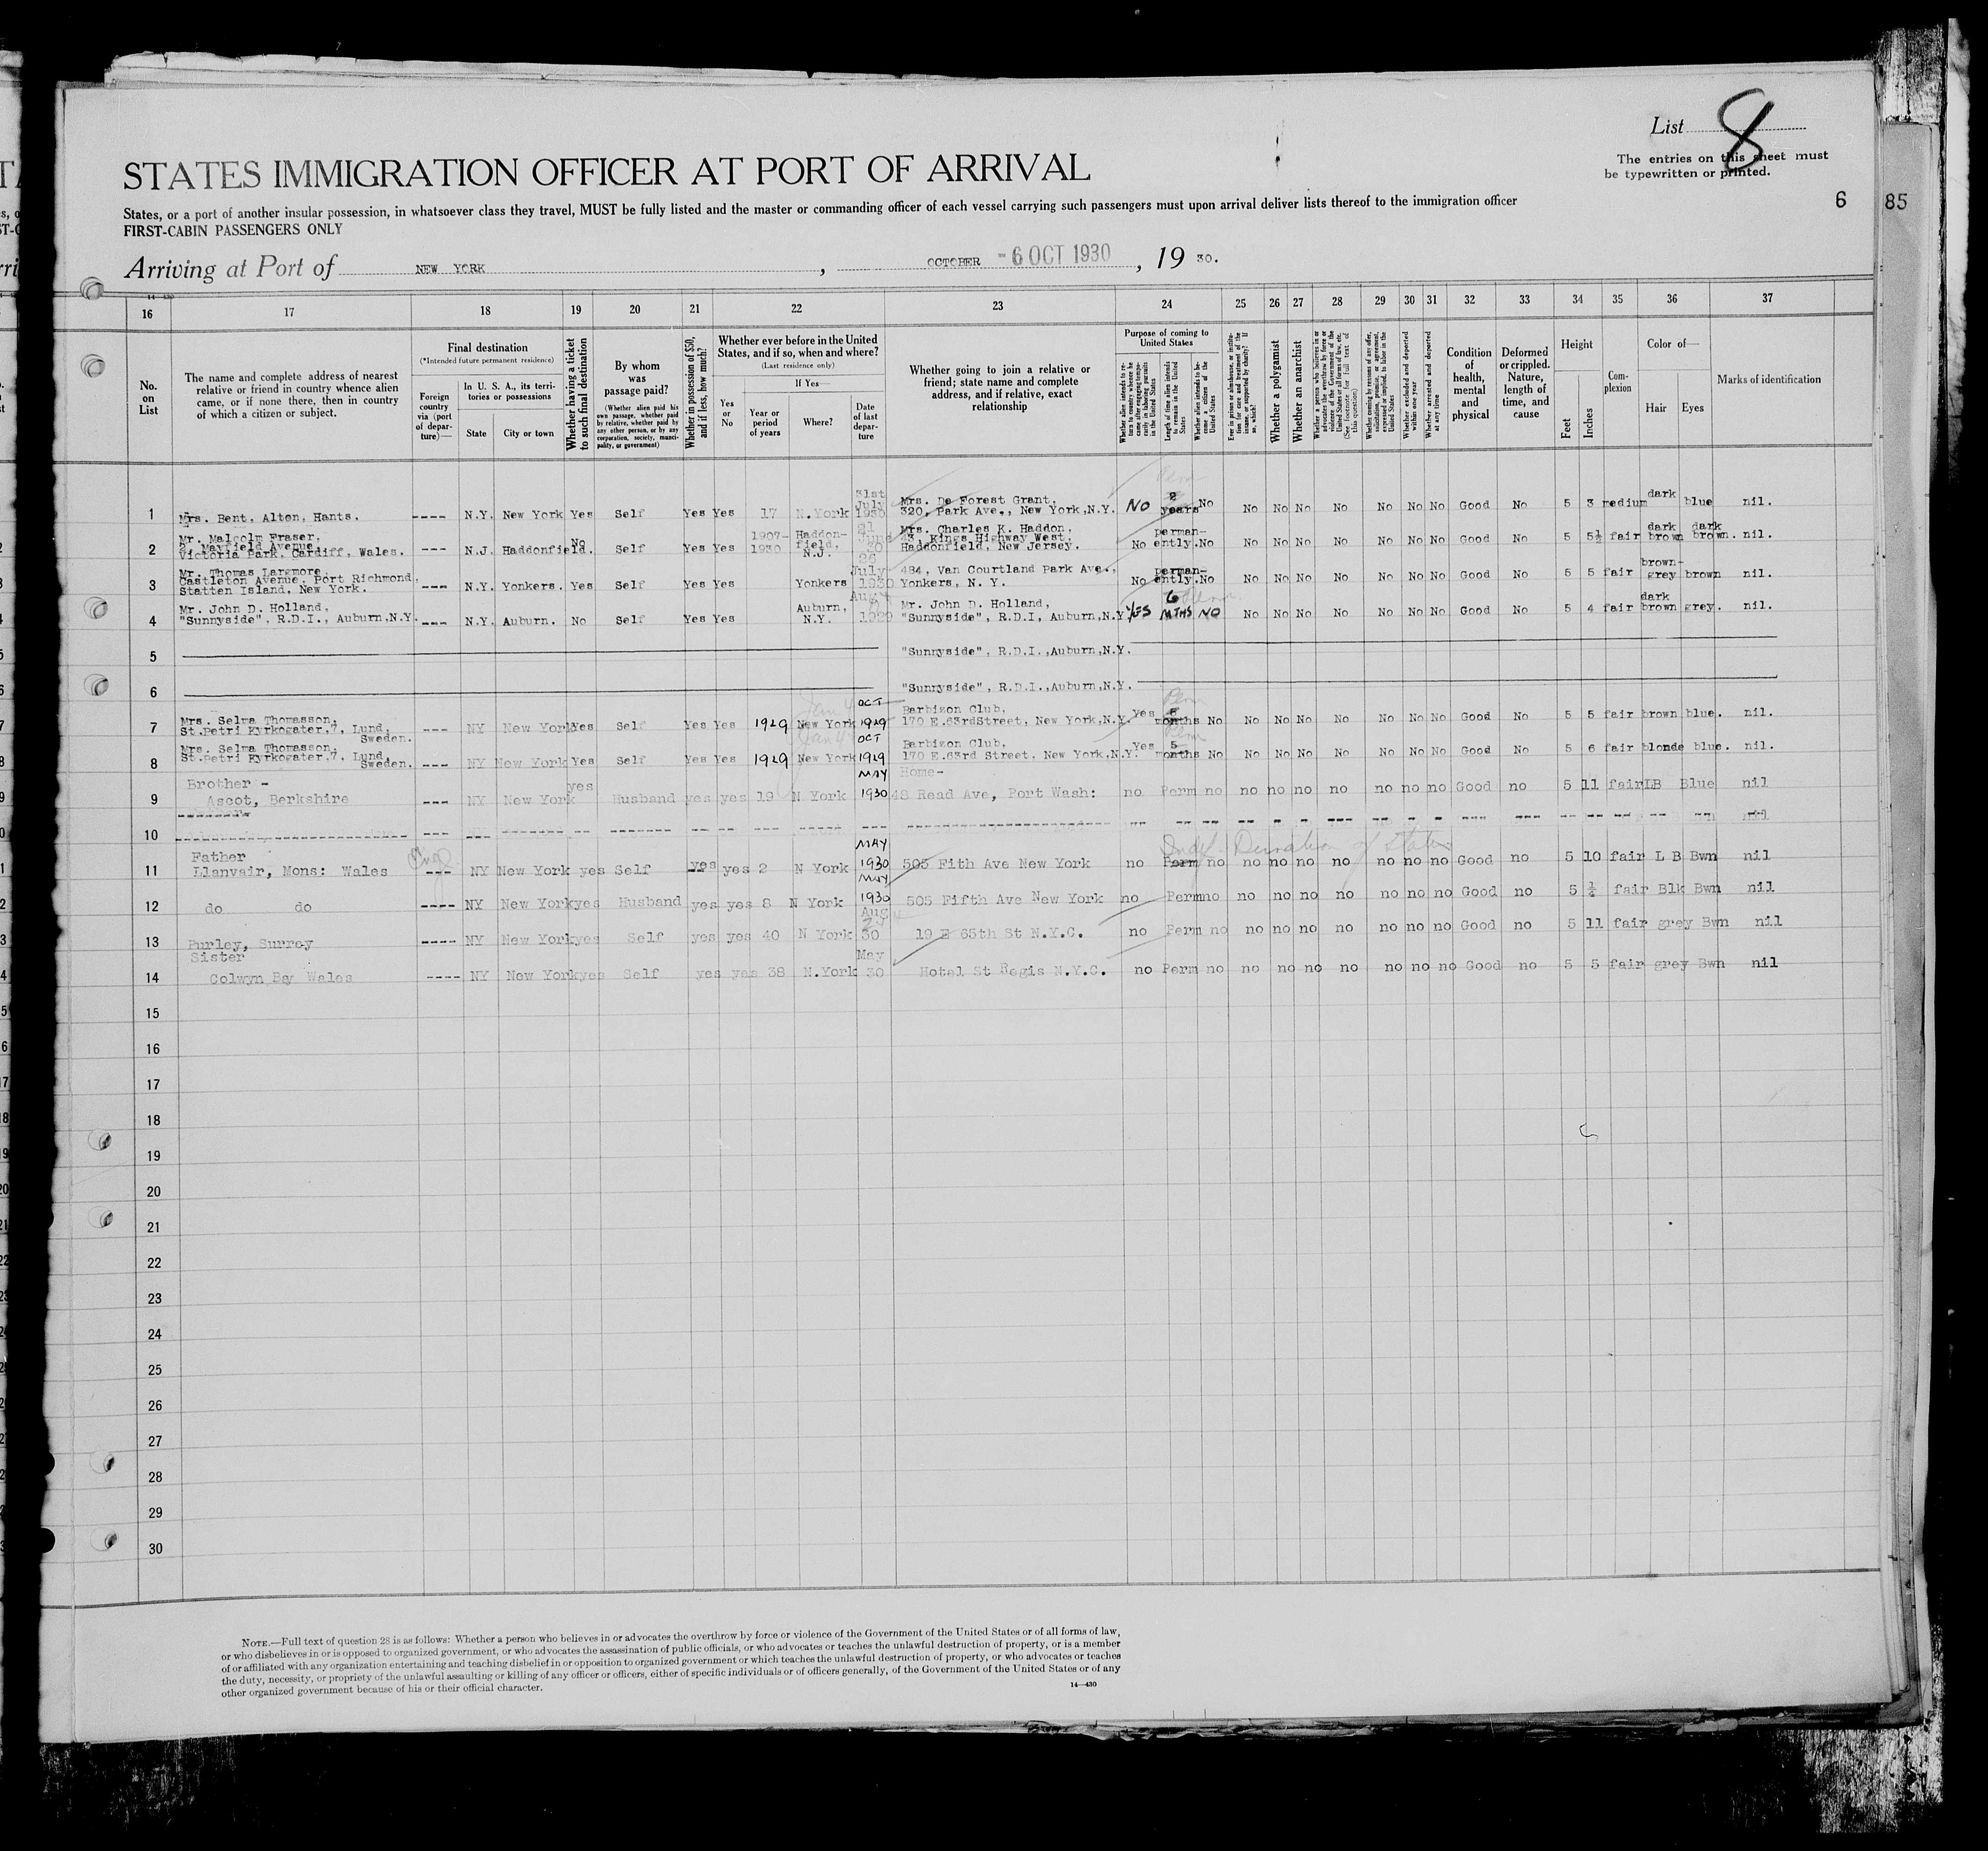 List 8
The entries on this sheet must
be typewritten or printed.
6 85
STATES IMMIGRATION OFFICER AT PORT OF ARRIVAL
States, or a port of another insular possession, in whatsoever class they travel, MUST be fully listed and the master or commanding officer of each vessel carrying such passengers must upon arrival deliver lists thereof to the immigration officer
FIRST-CABIN PASSENGERS ONLY
Arriving at Port of NEW YORK, OCTOBER - 6 OCT 1930, 19 30.
16 17 18 19 20 21 22 23 24 25 26 27 28 29 30 31 32 33 34 35 36 37
No. on List
The name and complete address of nearest
relative or friend in country whence alien
came, or if none there, then in country
of which a citizen or subject.
Final destination
(*Intended future permanent residence)
Foreign country via (port of departure)—
In U. S. A., its territories or possessions
State City or town
Whether having a ticket to such final destination
By whom was passage paid?
(Whether alien paid his own passage, whether paid by relative, whether paid by any other person, or by any corporation, society, municipality, or government)
Whether in possession of $50, and if less, how much?
Whether ever before in the United States, and if so, when and where?
(Last residence only)
If Yes—
Yes or No
Year or period of years
Where?
Date of last departure
Whether going to join a relative or
friend; state name and complete
address, and if relative, exact
relationship
Purpose of coming to United States
Whether alien intends to return to country whence he came after engaging temporarily in laboring pursuits in the United States
Length of time alien intends to remain in the United States
Whether alien intends to become a citizen of the United States
Ever in prison or almshouse, or institution for care and treatment of the insane, or supported by charity? If so, which?
Whether a polygamist
Whether an anarchist
Whether a person who believes in or advocates the overthrow by force or violence of the Government of the United States or all forms of law, etc. (See footnote for full text of this question)
Whether coming by reason of any offer, solicitation, promise, or agreement, expressed or implied, to labor in the United States
Whether excluded and deported within one year
Whether arrested and deported at any time
Condition of health, mental and physical
Deformed or crippled. Nature, length of time, and cause
Height
Feet Inches
Complexion
Color of—
Hair Eyes
Marks of identification
1 Mrs. Bent, Alton, Hants. ---- N.Y. New York Yes Self Yes Yes 17 N.York 31st July 1930 Mrs. De Forest Grant, 320, Park Ave., New York,N.Y. NO 2 years No No No No No No No No Good No 5 3 medium dark blue nil.
2 Mr. Malcolm Fraser, Mayfield Avenue, Victoria Park, Cardiff, Wales. --- N.J. Haddonfield. No Self Yes Yes 1907-1930 Haddonfield, N.J. 21 June 30 Mrs. Charles K. Haddon, 43, Kings Highway West, Haddonfield, New Jersey. No permanently. No No No No No No No No Good No 5 5½ fair dark brown dark brown. nil.
3 Mr. Thomas Largmore, Castleton Avenue, Port Richmond, Statten Island, New York. --- N.Y. Yonkers. Yes Self Yes Yes Yonkers 26 July 1930 484, Van Courtland Park Ave., Yonkers, N. Y. No permanently. No No No No No No No No Good No 5 5 fair brown-grey brown nil.
4 Mr. John D. Holland, "Sunnyside", R.D.I., Auburn,N.Y. --- N.Y. Auburn. No Self Yes Yes Auburn, N.Y. Aug 1929 Mr. John D. Holland, "Sunnyside", R.D.I, Auburn,N.Y. YES 6 MTHS NO No No No No No No No Good No 5 4 fair dark brown grey. nil.
5 "Sunnyside", R.D.I.,Auburn,N.Y.
6 "Sunnyside", R.D.I.,Auburn,N.Y.
7 Mrs. Selma Thomasson, St.Petri Kyrkogater,7, Lund, Sweden. --- NY New York Yes Self Yes Yes 1929 New York OCT 1929 Barbizon Club, 170 E.63rdStreet, New York,N.Y. Yes months No No No No No No No No Good No 5 5 fair brown blue. nil.
8 Mrs. Selma Thomasson, St.petri Kyrkogater,7, Lund, Sweden. --- NY New York Yes Self Yes Yes 1929 New York OCT 1929 Barbizon Club, 170 E.63rd Street, New York,N.Y. Yes 5 months No No No No No No No No Good No 5 6 fair blonde blue. nil.
9 Brother - Ascot, Berkshire --- NY New York yes Husband yes yes 19 N York MAY 1930 Home- 48 Read Ave, Port Wash: no Perm no no no no no no no no Good no 5 11 fair LB Blue nil
10 nil
11 Father Llanvair, Mons: Wales --- NY New York yes Self yes yes 2 N York MAY 1930 505 Fith Ave New York no Perm no no no no no no no no Good no 5 10 fair L B Bwn nil
12 do do ---- NY New York yes Husband yes yes 8 N York MAY 1930 505 Fifth Ave New York no Perm no no no no no no no no Good no 5 ½ fair Blk Bwn nil
13 Purley, Surrey ---- NY New York yes Self yes yes 40 N York Aug 30 19 E 65th St N.Y.C. no Perm no no no no no no no no Good no 5 11 fair grey Bwn nil
14 Sister Colwyn Bay Wales ---- NY New York yes Self yes yes 38 N.York May 30 Hotel St Regis N.Y.C. no Perm no no no no no no no no Good no 5 5 fair grey Bwn nil
15
16
17
18
19
20
21
22
23
24
25
26
27
28
29
30
NOTE.—Full text of question 28 is as follows: Whether a person who believes in or advocates the overthrow by force or violence of the Government of the United States or of all forms of law,
or who disbelieves in or is opposed to organized government, or who advocates the assassination of public officials, or who advocates or teaches the unlawful destruction of property, or is a member
of or affiliated with any organization entertaining and teaching disbelief in or opposition to organized government or which teaches the unlawful destruction of property, or who advocates or teaches
the duty, necessity, or propriety of the unlawful assaulting or killing of any officer or officers, either of specific individuals or of officers generally, of the Government of the United States or of any
other organized government because of his or their official character.
14—430